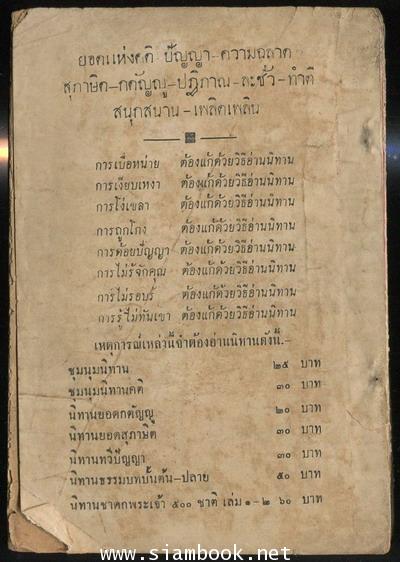 ยอดแห่งคติ ปัญญา-ความฉลาด
สุภาษิต-กตัญญู-ปฏิภาณ-ละชั่ว-ทำดี
สนุกสนาน-เพลิดเพลิน
การเบื่อหน่าย ต้องแก้ด้วยวิธีอ่านนิทาน
การเงียบเหงา ต้องแก้ด้วยวิธีอ่านนิทาน
การโง่เขลา ต้องแก้ด้วยวิธีอ่านนิทาน
การถูกโกง ต้องแก้ด้วยวิธีอ่านนิทาน
การด้อยปัญญา ต้องแก้ด้วยวิธีอ่านนิทาน
การไม่รู้จักคุณ ต้องแก้ด้วยวิธีอ่านนิทาน
การไม่รอบรู้ ต้องแก้ด้วยวิธีอ่านนิทาน
การรู้ไม่ทันเขา ต้องแก้ด้วยวิธีอ่านนิทาน
เหตุการณ์เหล่านี้จำต้องอ่านนิทานดังนี้.-
ชุมนุมนิทาน ๒๕ บาท
ชุมนุมนิทานคติ ๓๐ บาท
นิทานยอดกตัญญู ๒๐ บาท
นิทานยอดสุภาษิต ๓๐ บาท
นิทานทวีปัญญา ๓๐ บาท
นิทานธรรมบทบั้นต้น-ปลาย ๕๐ บาท
นิทานชาดกพระเจ้า ๕๐๐ ชาติ เล่ม ๑-๒ ๖๐ บาท
www.siambook.net